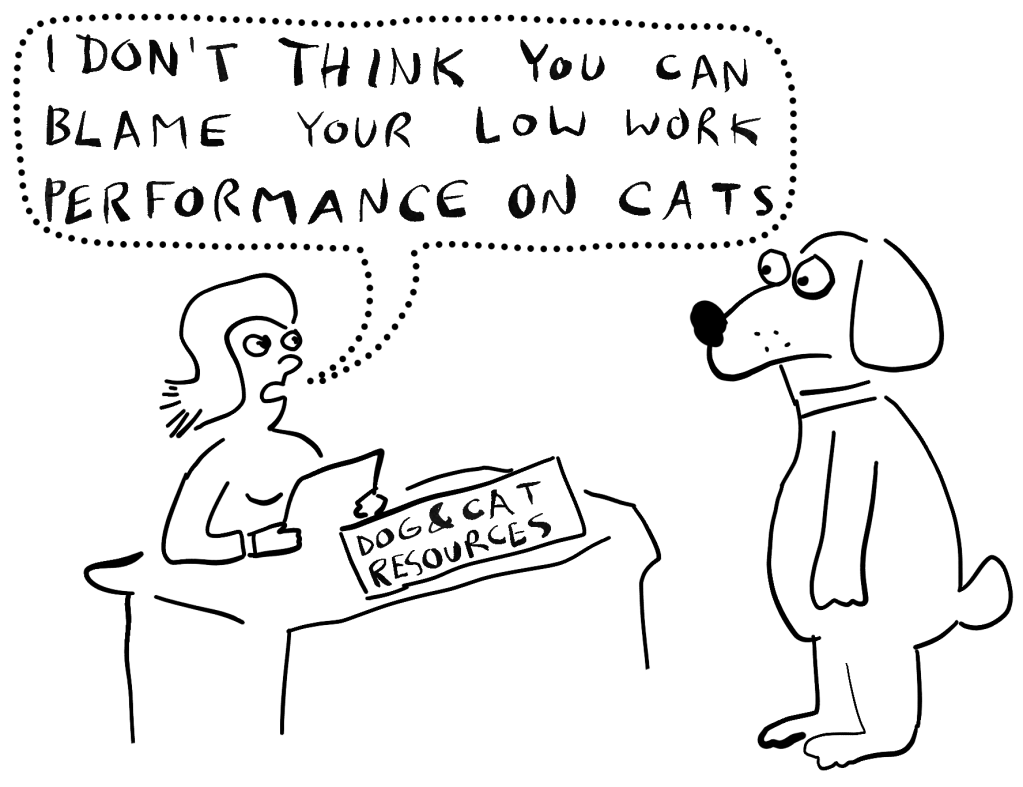 I DON'T THINK YOU CAN
BLAME YOUR LOW WORK
PERFORMANCE ON CATS
DOG & CAT
RESOURCES